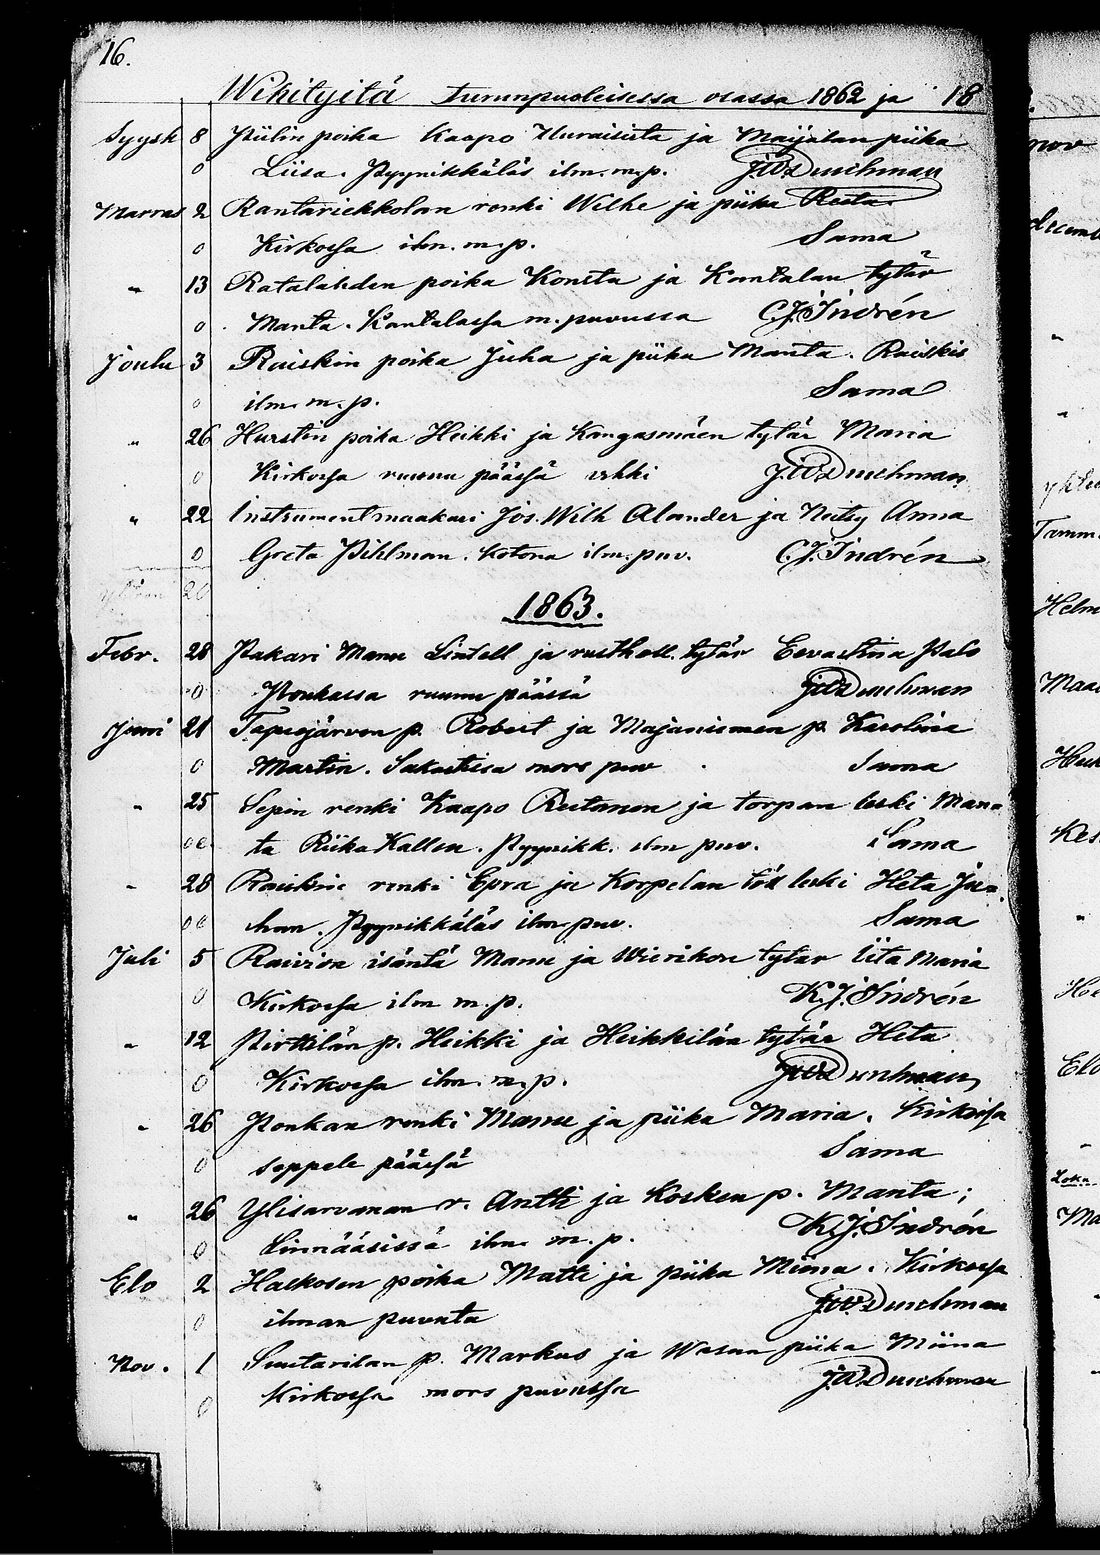 16.
Wihityitä turunpuoleisessa osassa 1862 ja 18
Syysk 8 Piilin poika Kaapo Uuraisista ja Maijalan piika
0 Liisa. Pyynikkäläs ilm. m. p. Duschman
Marras 2 Rantariekkolan renki Wilhe ja piika Reeta
0 Kirkossa ilm. m. p. Sama
" 13 Ratalahden poika Konsta ja Kantalan tytär
0 Manta. Kantalassa m. puvussa C.J. Indrén
Joulu 3 Raiskin poika Juha ja piika Manta. Raiskis
0 ilm. m. p. Sama
" 26 Hurstin poika Heikki ja Kangasmäen tytär Maria
0 Kirkossa ruunu päässä vihki Duschman
" 22 Instrumentmaakari Jos. Wilh Alander ja Neitsy Anna
0 Greta Pihlman. kotona ilm. puv. C.J. Indrén
20
1863.
Febr. 28 Pakari Manu Lintell ja rusthall. tytär Eevastina Palo
0 Ponkassa ruunu päässä Duschman
Juni 21 Tapiojärven p. Robert ja Majaniemen p. Karolina
0 Martin. mors puv Sama
" 25 Sepin renki Kaapo Reetanen ja torpan leski Man=
00 ta Riika Kallen. Pyynikk. ilm puv. Sama
" 28 Raiskin renki Epra ja Korpelan leski Heta Ju=
00 han. Pyynikkäläs ilm puv. Sama
Juli 5 Raivion isäntä Manu ja Wierikon tytär Iita Maria
0 Kirkossa ilm m. p. K.J. Indrén
" 12 Pirttilän p. Heikki ja Heikkilän tytär Heta
0 Kirkossa ilm. m. p. Duschman
" 26 Ponkan renki Manu ja piika Maria. Kirkossa
0 seppele päässä Sama
" 26 Ylisarvanan r. Antti ja Kosken p. Manta;
0 Linnääsissä ilm. m. p. K.J. Indrén
Elo 2 Halkosen poika Matti ja piika Miina. Kirkossa
0 ilman puvuta Duschman
Nov. 1 Suutarilan p. Markus ja Wasun piika Miina
0 Kirkossa mors puvussa Duschman
nov
decemb
Tamm
Helm
Maa
Huh
Kes
Hei
Elo
Loka
Ma